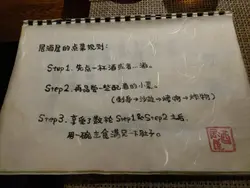 居酒屋的点菜规则:
Step1. 先点一杯酒或者一酒。
Step2. 再品尝一些配酒的小菜。
(刺身→沙拉→烤物→炸物)
Step3. 享受了数轮 Step1和Step2之后,
用一碗主食满足一下肚子。